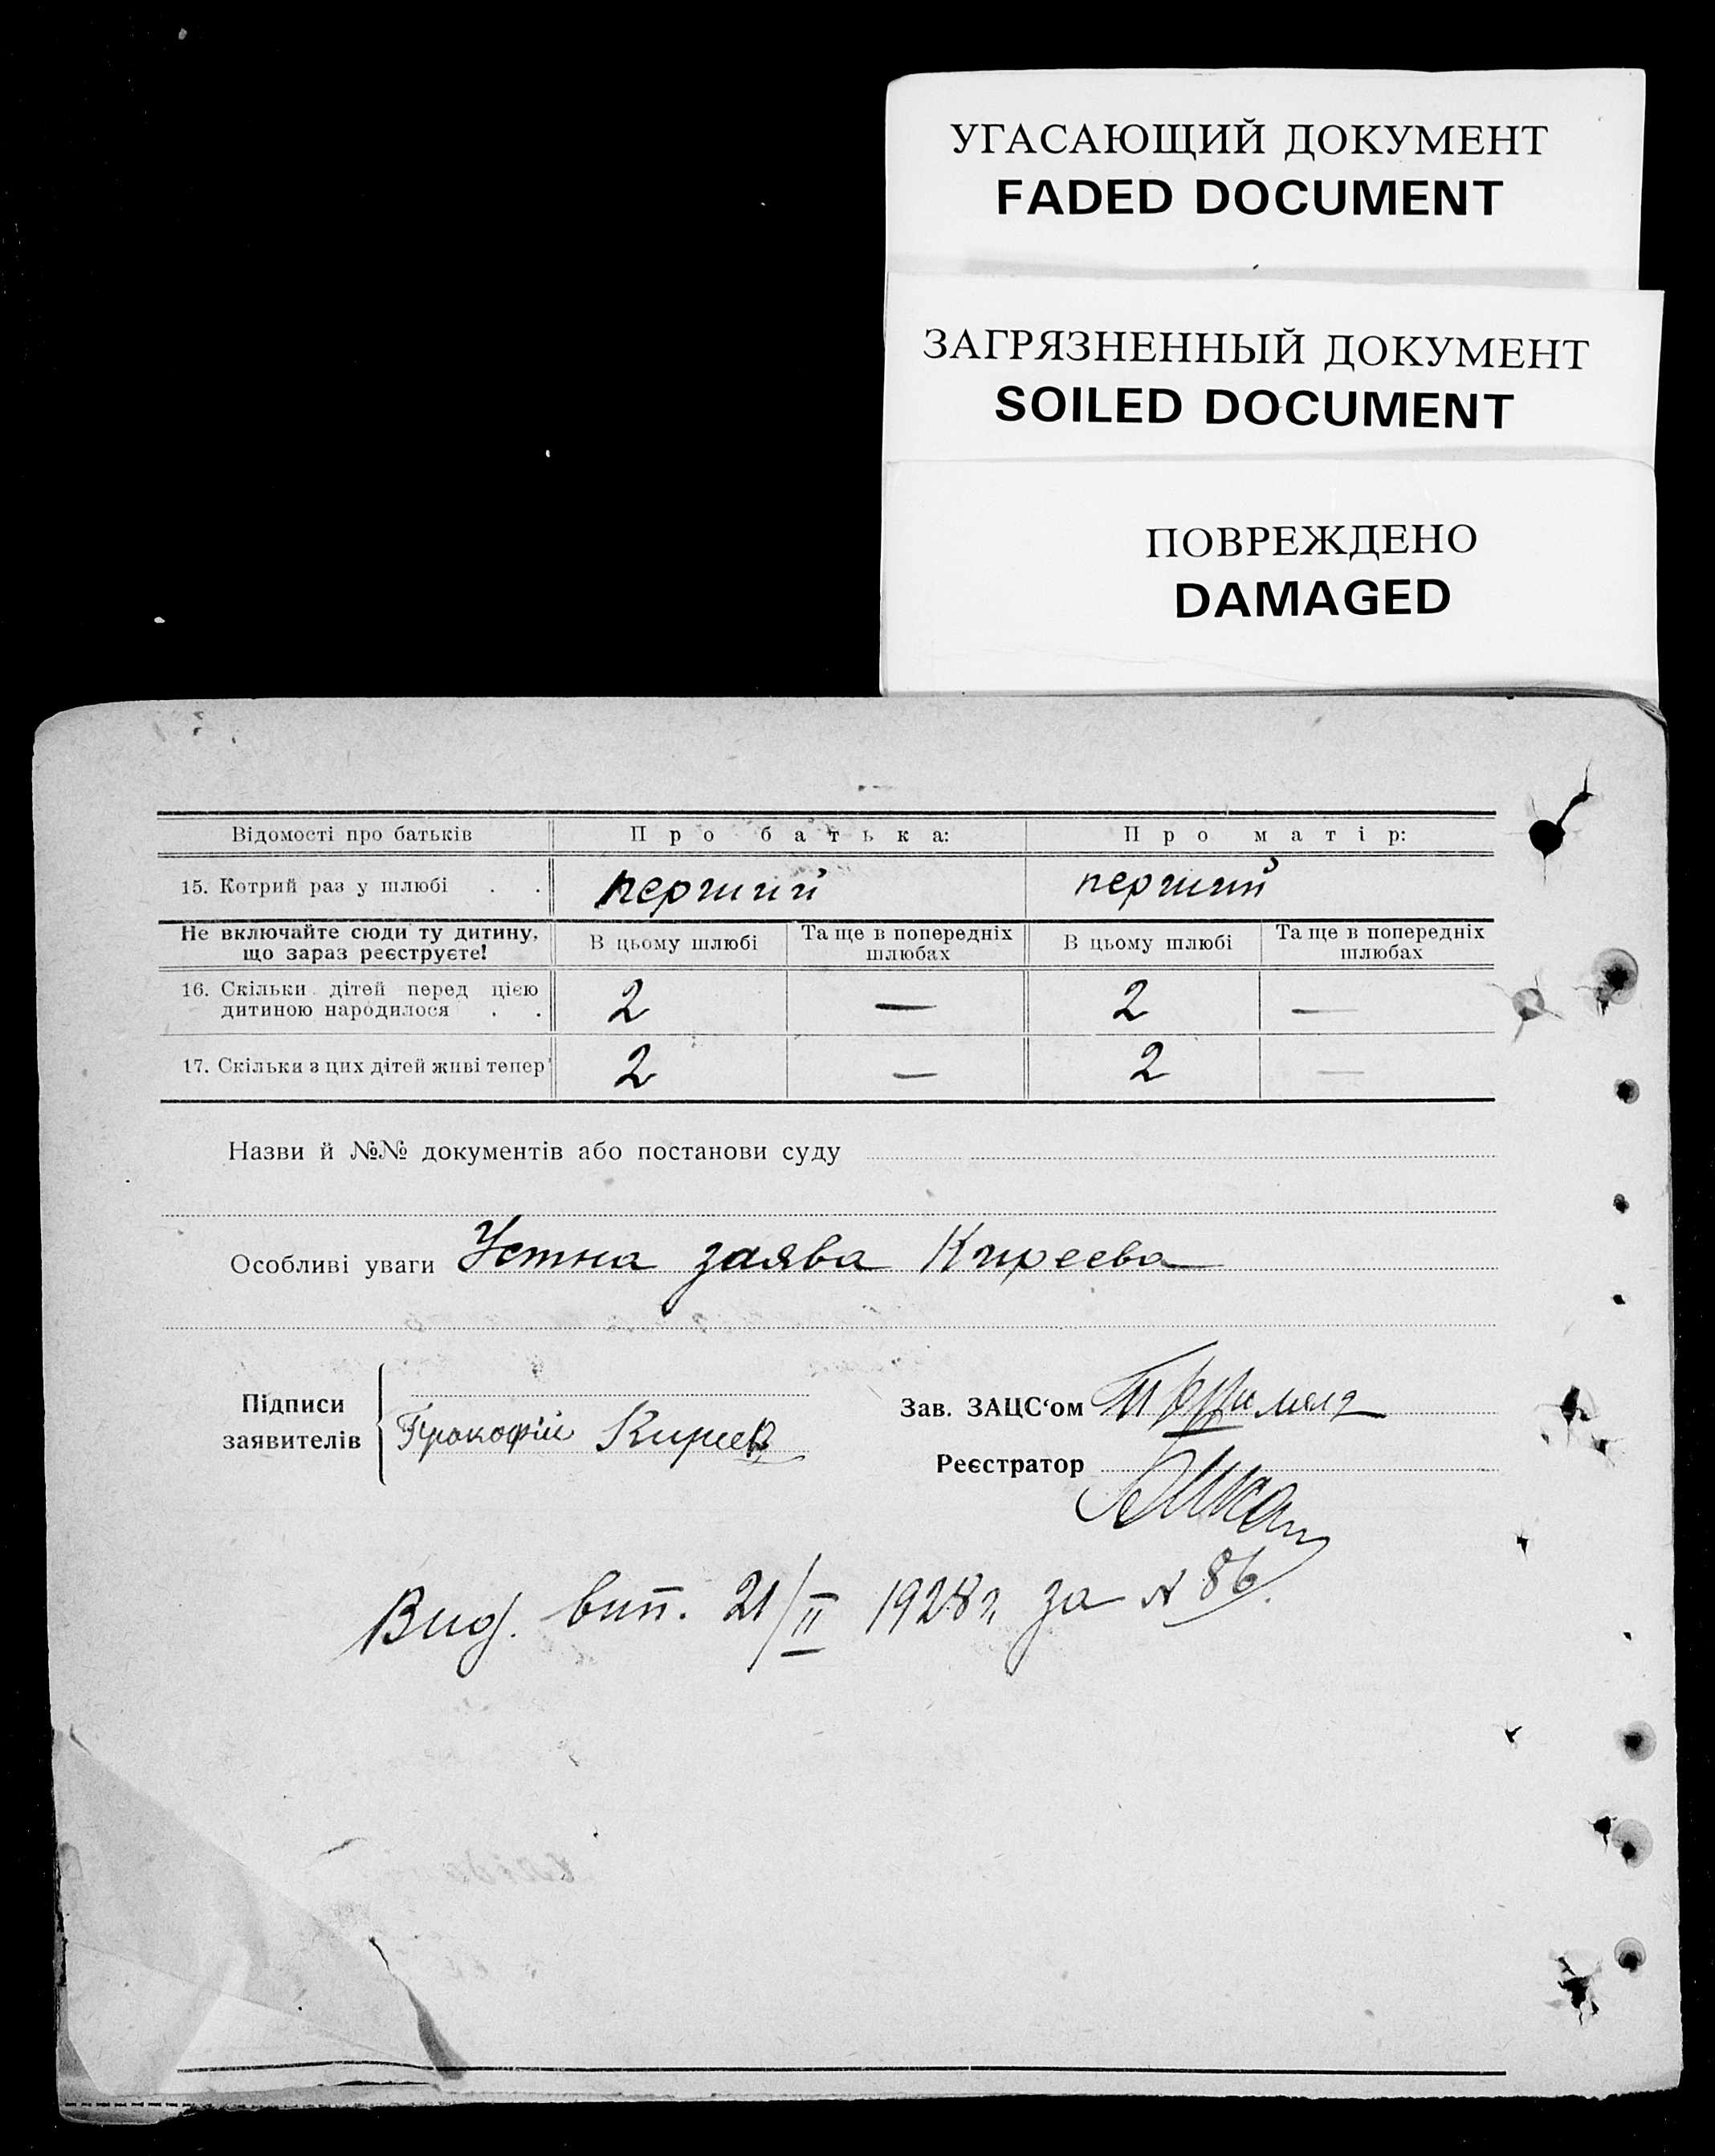 УГАСАЮЩИЙ ДОКУМЕНТ
FADED DOCUMENT
ЗАГРЯЗНЕННЫЙ ДОКУМЕНТ
SOILED DOCUMENT
ПОВРЕЖДЕНО
DAMAGED
Відомості про батьків Про батька: Про матір:
15. Котрий раз у шлюбі . . перший перший
Не включайте сюди ту дитину, що зараз реєструєте! В цьому шлюбі Та ще в попередніх шлюбах В цьому шлюбі Та ще в попередніх шлюбах
16. Скільки дітей перед цією дитиною народилося . . 2 — 2 —
17. Скільки з цих дітей живі тепер 2 — 2 —
Назви й №№ документів або постанови суду
Особливі уваги Устна заява Киреева
Підписи заявителів Прокофій Киреев
Зав. ЗАЦС‘ом
Реєстратор
Вид. вип. 21/II 1928 г. за № 86.